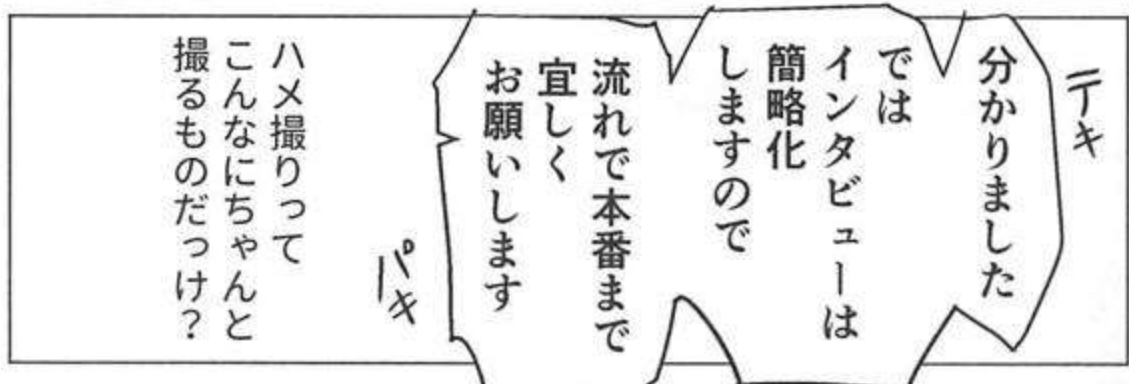 テキ
分かりました
では
インタビューは
簡略化
しますので
流れで本番まで
宜しく
お願いします
パキ
ハメ撮りって
こんなにちゃんと
撮るものだっけ？